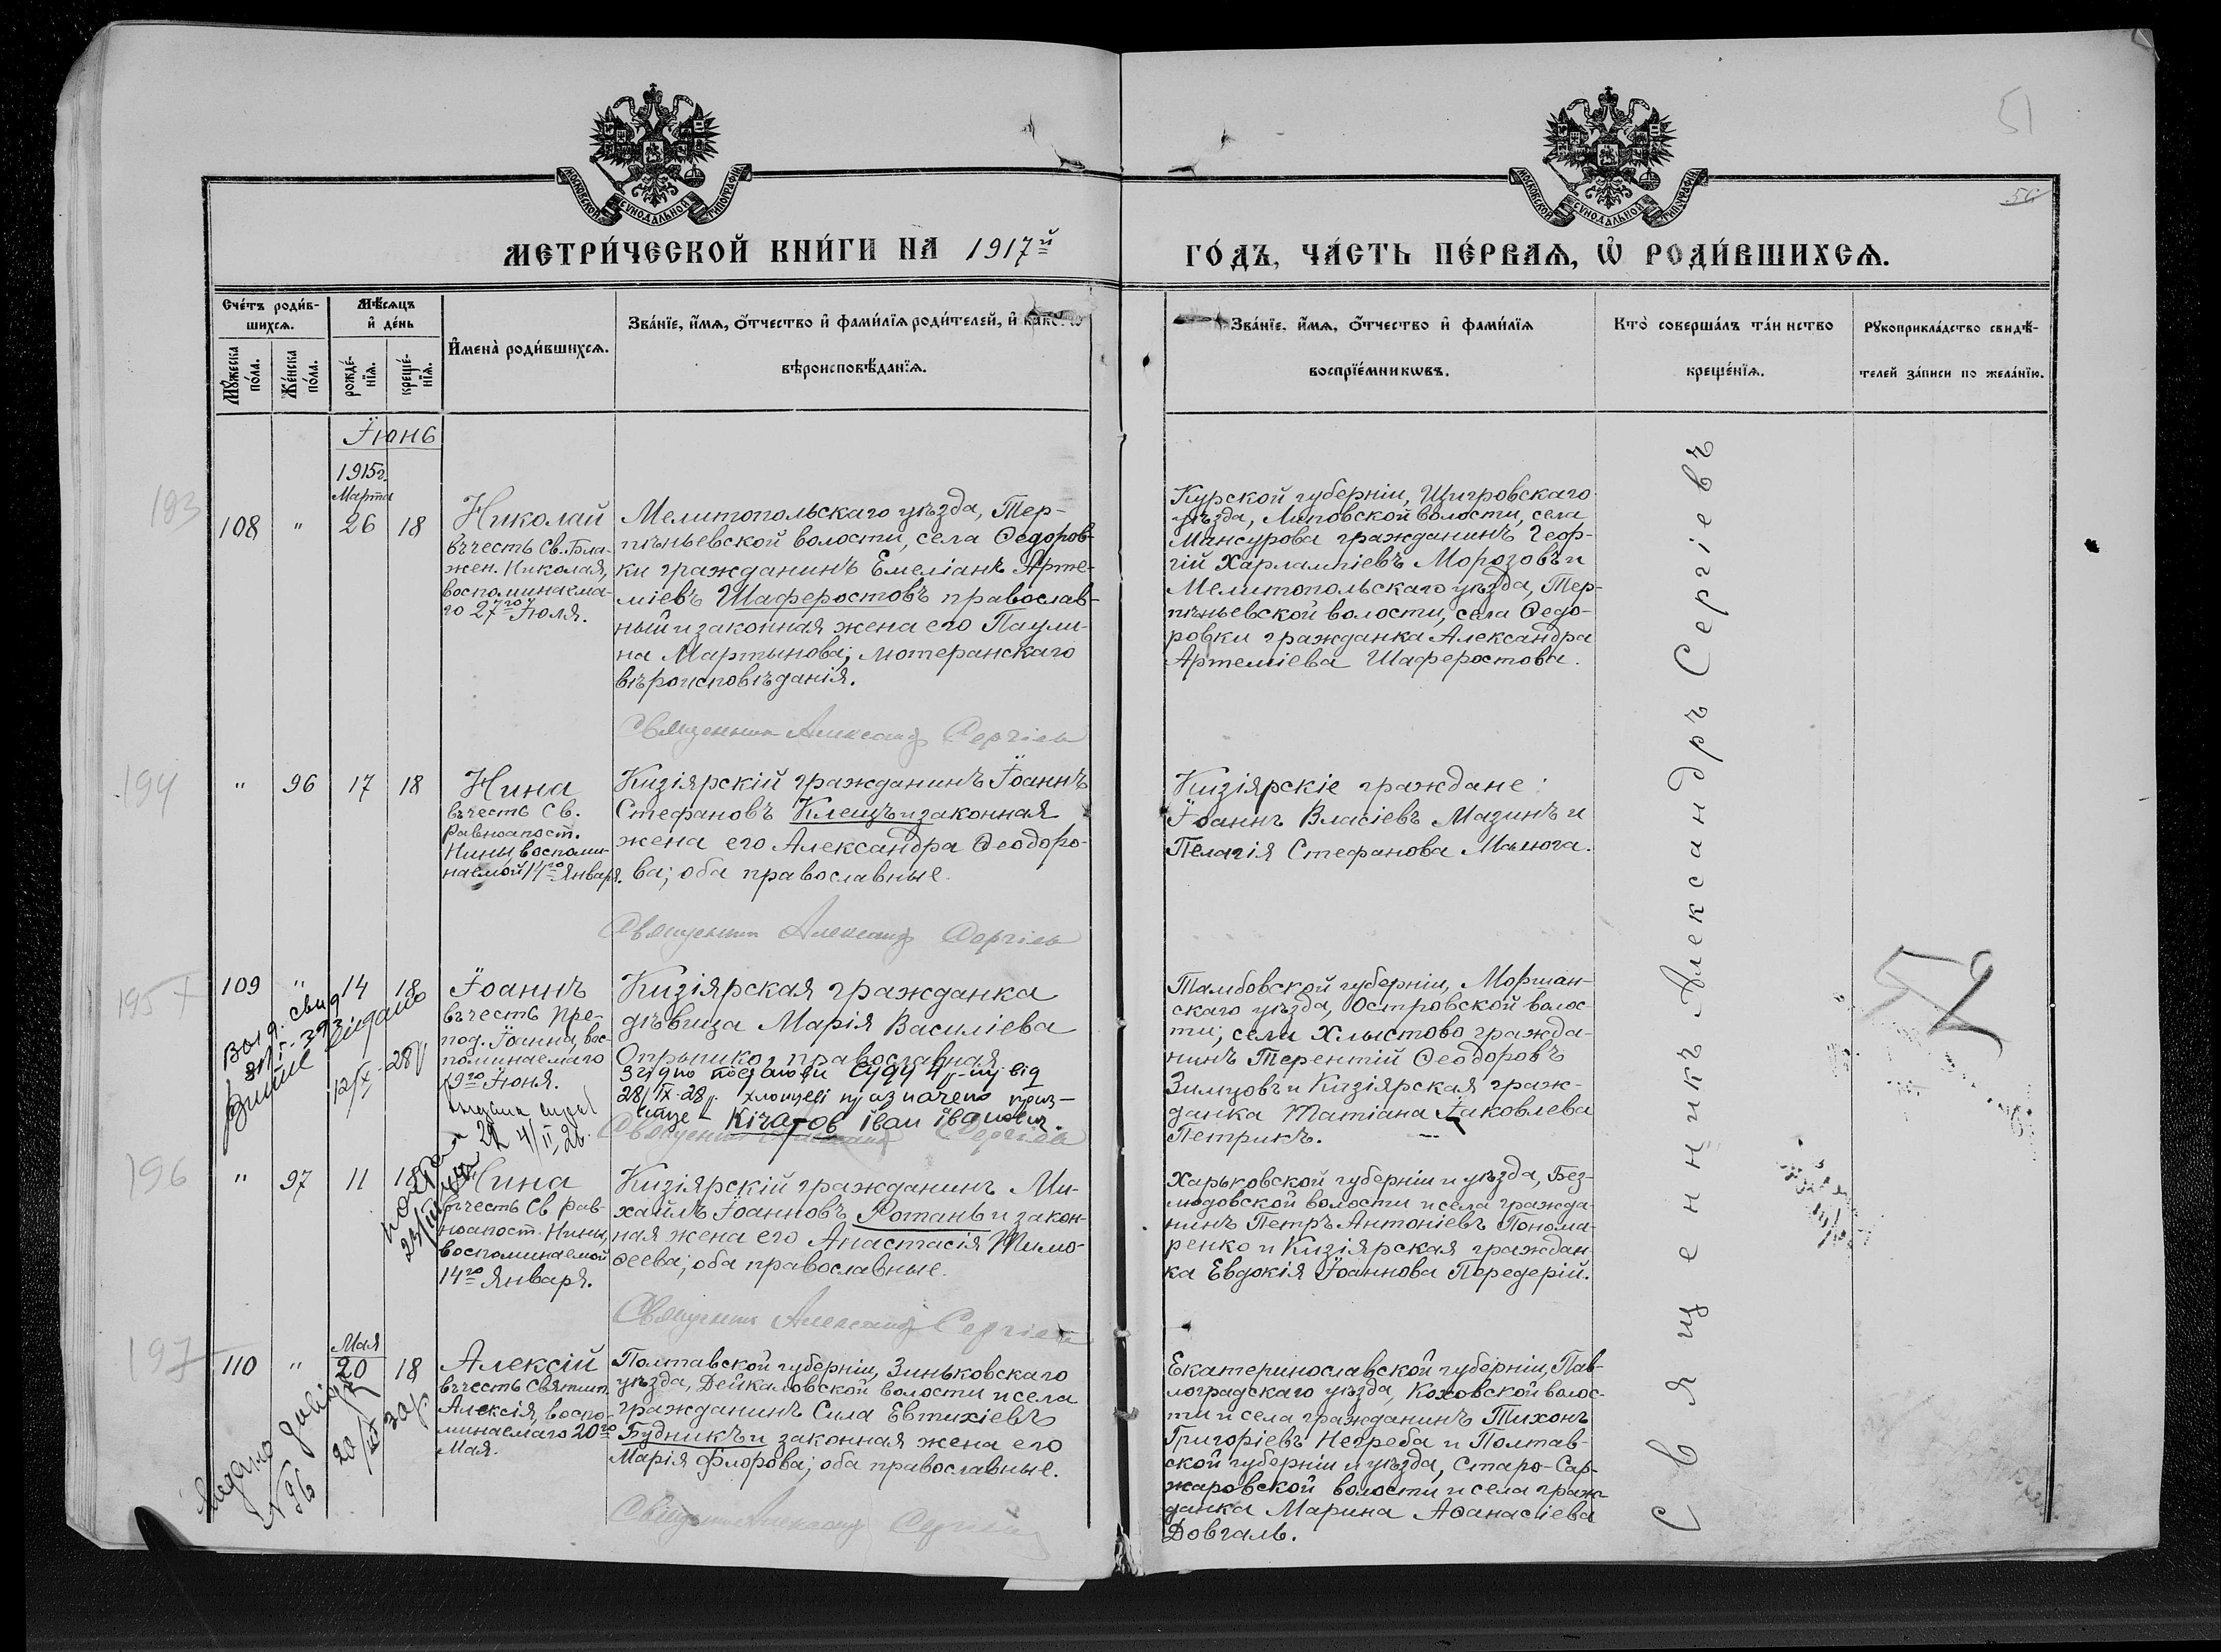 51
54
МОСКОВСКОЙ СѴНОДАЛЬНОЙ ТИПОГРАФІИ
МОСКОВСКОЙ СѴНОДАЛЬНОЙ ТИПОГРАФІИ
МЕТРИ́ЧЕСКОЙ КНИ́ГИ НА 1917й
ГО́ДЪ, ЧА́СТЬ ПЕ́РВАѦ, Ѿ РОДИ́ВШИХСѦ.
Сче́тъ роди́в-
шихсѧ.
Мꙋ́жеска по́ла.
Же́нска по́ла.
Мѣ́сѧцъ
и҆ де́нь
рожде́-нїѧ.
креще́-нїѧ.
И҆мена̀ роди́вшихсѧ.
Зва́нїе, и҆́мѧ, ѻ҆́тчество и҆ фами́лїѧ роди́телей, и҆
вѣроисповѣ́данїѧ.
Зва́нїе, и҆́мѧ, ѻ҆́тчество и҆ фами́лїѧ
воспрїе́мникѡвъ.
Кто̀ соверша́лъ та́инство
креще́нїѧ.
Рꙋкоприкла́дство свидѣ́-
телей за́писи по жела́нїю.
Іюнь
1915г.
Марта
193
108 " 26 18
Николай
въ честь Св. Бла-
жен. Николая,
воспоминаема-
го 27го Іюля.
Мелитопольскаго уѣзда, Тер-
пѣньевской волости, села Ѳедоров-
ки гражданинъ Емеліанъ Арте-
міевъ Шаферостовъ православ-
ный и законная жена его Паули-
на Мартынова; лютеранскаго
вѣроисповѣданія.
Священникъ Александръ Сергіевъ
Курской губерніи, Щигровскаго
уѣзда, Липовской волости, села
Мансурова гражданинъ Геор-
гій Харлампіевъ Морозовъ и
Мелитопольскаго уѣзда, Тер-
пѣньевской волости, села Ѳедо-
ровки гражданка Александра
Артеміева Шаферостова.
Священникъ Александръ Сергіевъ
194
" 96 17 18
Нина
въ честь Св.
Равноапост.
Нины, воспоми-
наемой 14го Января.
Кизіярскій гражданинъ Іоаннъ
Стефановъ Клещъ и законная
жена его Александра Ѳеодоро-
ва; оба православные.
Священникъ Александръ Сергіевъ
Кизіярскіе граждане:
Іоаннъ Власіевъ Мазинъ и
Пелагія Стефанова Малюга.
195
109 " 14 18
Іоаннъ
въ честь Пре-
под. Іоанна, вос-
поминаемаго
19го Іюня.
Кизіярская гражданка
дѣвица Марія Василіева
православная
Згідно постанови суду від
28/IX-28р. хлопцеві призначено приз-
вище - Кічатов Іван Іванович.
Священникъ Сергіевъ
Тамбовской губерніи, Моршан-
скаго уѣзда, Островской волос-
ти, села Хлыстово гражда-
нинъ Терентій Ѳеодоровъ
Зимцовъ и Кизіярская граж-
данка Татіана Іаковлева
Петрикъ.
52
196
" 97 11 18
Нина
въ честь Св. Рав-
ноапост. Нины,
воспоминаемой
14го Января.
Кизіярскій гражданинъ Ми-
хаилъ Іоанновъ Ротань и закон-
ная жена его Анастасія Тимо-
ѳеева; оба православные.
Священникъ Александръ Сергіевъ
Харьковской губерніи и уѣзда, Без-
людовской волости и села гражда-
нинъ Петръ Антоніевъ Понома-
ренко и Кизіярская граждан-
ка Евдокія Іоаннова Передерій.
197
Мая
110 " 20 18
Алексій
въ честь Святит.
Алексія, воспо-
минаемаго 20го
Мая.
Полтавской губерніи, Зиньковскаго
уѣзда, Дейкаловской волости и села
гражданинъ Сила Евтихіевъ
Будникъ и законная жена его
Марія Флорова; оба православные.
Священникъ Александръ Сергіевъ
Екатеринославской губерніи, Пав-
лоградскаго уѣзда, Коховской волос-
ти и села гражданинъ Тихонъ
Григоріевъ Негреба и Полтав-
ской губерніи и уѣзда, Старо-Сан-
жаровской волости и села граж-
данка Марина Аѳанасіева
Довгаль.